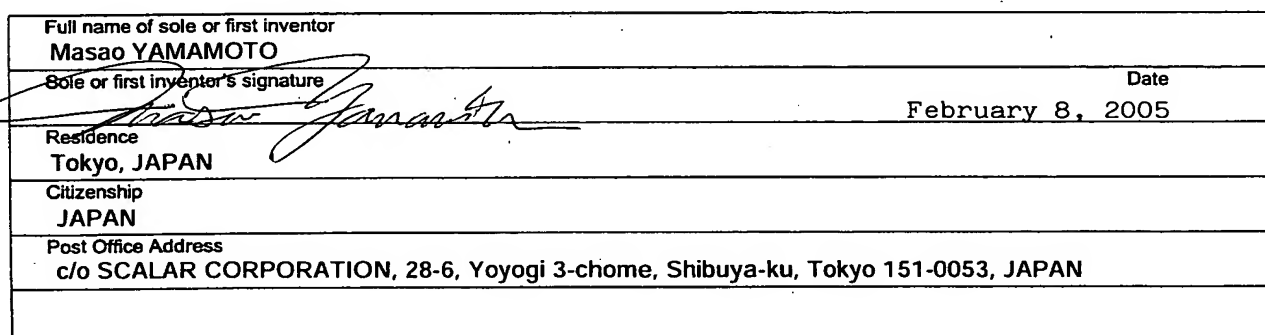 Full name of sole or first inventor
Masao YAMAMOTO
Sole or first inventor's signature Date
Masao Yamamoto
February 8, 2005
Residence
Tokyo, JAPAN
Citizenship
JAPAN
Post Office Address
c/o SCALAR CORPORATION, 28-6, Yoyogi 3-chome, Shibuya-ku, Tokyo 151-0053, JAPAN